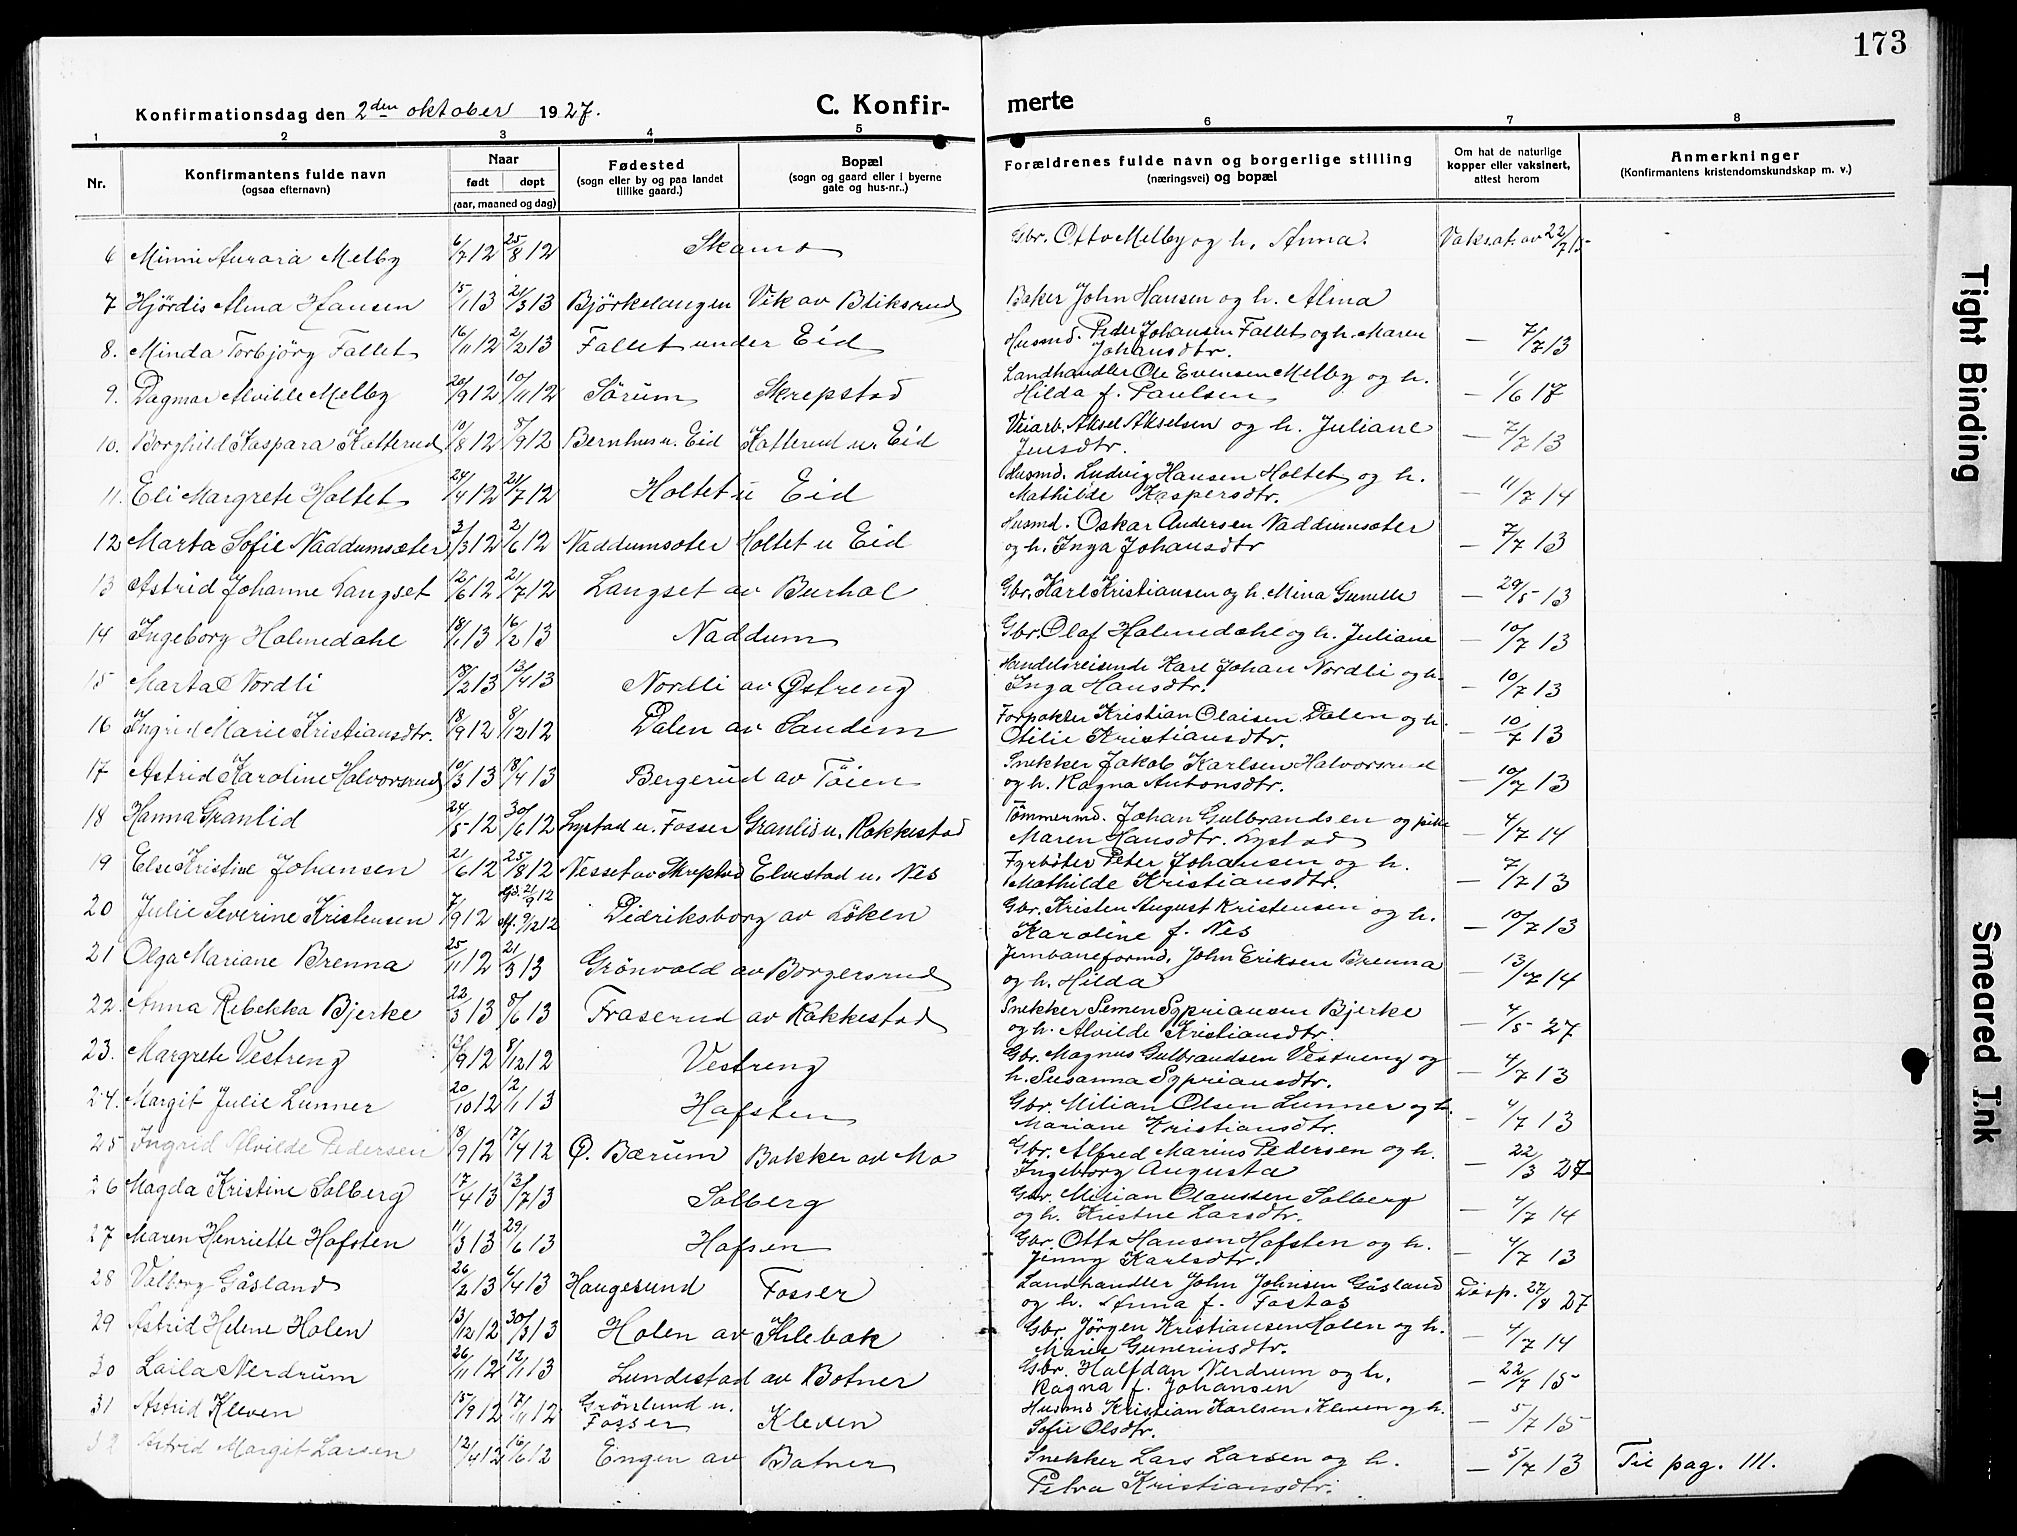 173
Konfirmationsdag den 2den oktober 1927.
C. Konfir-merte
1 2 3 4 5 6 7 8
Nr.
Konfirmantens fulde navn (ogsaa efternavn)
Naar født døpt (aar, maaned og dag)
Fødested (sogn eller by og paa landet tillike gaard.)
Bopæl (sogn og gaard eller i byerne gate og hus-nr..)
Forældrenes fulde navn og borgerlige stilling (næringsvei) og bopæl
Om hat de naturlige kopper eller vaksinert, attest herom
Anmerkninger (Konfirmantens kristendomskundskap m. v.)
6 Minni Aurora Melby 6/7 12 25/8 12 Skamo Gbr. Otto Melby og h. Anna. Vaksat. av 22/7 15
7 Hjördis Alma Hansen 15/1 13 21/3 13 Björkelangen Vik av Bliksrud Baker John Hansen og h. Alma
8. Minda Torbjörg Fallet 16/11 12 2/2 13 Fallet under Eid Husmd. Peder Johansen Fallet og h. Maren Johansdtr. — 7/7 13
9. Dagmar Alvilde Melby 20/9 12 10/11 12 Sörum Skrepstad Landhandler Ole Evensen Melby og h. Hilda f. Paulsen — 1/6 17
10. Borghild Kaspara Katterud 10/8 12 8/9 12 Bernhus u. Eid Katterud u. Eid Veiarb. Aksel Akselsen og h. Juliane Jensdtr. — 7/7 13
11. Eli Margrete Holtet 24/4 12 21/7 12 Holtet u Eid Husmd. Ludvig Hansen Holtet og h. Mathilde Kaspersdtr. — 11/7 14
12 Marta Sofie Naddumsæter 3/3 12 2/6 12 Naddumsæter Holtet u Eid Husmd. Oskar Andersen Naddumsæter og h. Inga Johansdtr — 7/7 13
13 Astrid Johanne Langset 12/6 12 21/7 12 Langset av Burhol Gbr. Karl Kristiansen og h. Mina Gunelle — 29/5 13
14 Ingeborg Holmedahl 18/1 13 16/2 13 Naddum Gbr. Olaf Holmedahl og h. Juliane — 10/7 13
15 Marta Nordli 18/2 13 13/4 13 Nordli av Østreng Handelsreisende Karl Johan Nordli og h. Inga Hansdtr. — 10/7 13
16 Ingrid Marie Kristiansdtr. 18/9 12 8/12 12 Dalen av Sandem Forpakter Kristian Olaisen Dalen og h. Otilie Kristiansdtr. — 10/7 13
17 Astrid Karoline Halvorsrud 10/3 13 18/4 13 Bergerud av Töien Snekker Jakob Karlsen Halvorsrud og h. Ragna Antonsdtr. — 10/7 13
18 Hanna Granlid 24/5 12 30/6 12 Lystad u. Fosser Granli u. Kakkestad Tömmermd. Johan Gulbrandsen og pike Maren Hansdtr. Lystad — 4/7 14
19 Else Kristine Johansen 21/6 12 25/8 12 Nesset av Skrepstad Elvestad u. Nes Fyrböter Peter Johansen og h. Mathilde Kristiansdtr. — 7/7 13
20 Julie Severine Kristensen 7/9 12 21/9 12 9/12 12 Didriksborg av Löken Gbr. Kristen August Kristensen og h. Karoline f. Nes — 10/7 13
21 Olga Mariane Brenna 25/11 12 21/3 13 Grönvold av Borgersrud Jernbaneformd. John Eriksen Brenna og h. Hilda — 13/7 14
22. Anna Rebekka Bjerke 22/3 13 8/6 13 Fraserud av Kakkestad Snekker Semen Sypriansen Bjerke og h. Alvilde Kristiansdtr. — 4/5 27
23. Margrete Vestreng 13/9 12 8/12 12 Vestreng Gbr. Magnus Gulbrandsen Vestreng og h. Susanna Sypriansdtr. — 4/7 13
24. Margit Julie Lunner 20/10 12 12/1 13 Hafsten Gbr. Milian Olsen Lunner og h. Mariane Kristiansdtr. — 4/7 13
25 Ingrid Alvilde Pedersen 18/9 12 17/4 12 Ø. Bærum Bakker av Mo Gbr. Alfred Marius Pedersen og h. Ingeborg Augusta — 22/3 27
26 Magda Kristine Solberg 17/4 13 13/7 13 Solberg Gbr. Milian Olaussen Solberg og h. Kristne Larsdtr. — 4/7 14
27 Maren Henriette Hafsten 11/3 13 29/6 13 Hafsen Gbr. Otto Hansen Hafsten og h. Jenny Karlsdtr. — 4/7 13
28 Valborg Gåsland 26/2 13 6/4 13 Haugesund Fosser Landhandler John Johnsen Gåsland og h. Anna f. Fostas Disp. 27/8 27
29 Astrid Helene Holen 13/12 12 30/3 13 Holen av Ihlebæk Gbr. Jörgen Kristiansen Holen og h. Marie Gunerinsdtr. — 4/7 14
30 Laila Nerdrum 26/11 12 12/1 13 Lundestad av Botner Gbr. Halfdan Nerdrum og h. Ragna f. Johansen — 22/7 15
31 Astrid Kleven 15/9 12 17/11 12 Grönlund u. Fosser Kleven Husmd Kristian Karlsen Kleven og h. Sofie Olsdtr. — 5/7 15
32 Astrid Margit Larsen 12/4 12 16/6 12 Engen av Botner Snekker Lars Larsen og h. Petra Kristiansdtr. — 5/7 13 Til pag. 111.
Tight Binding
Smeared Ink